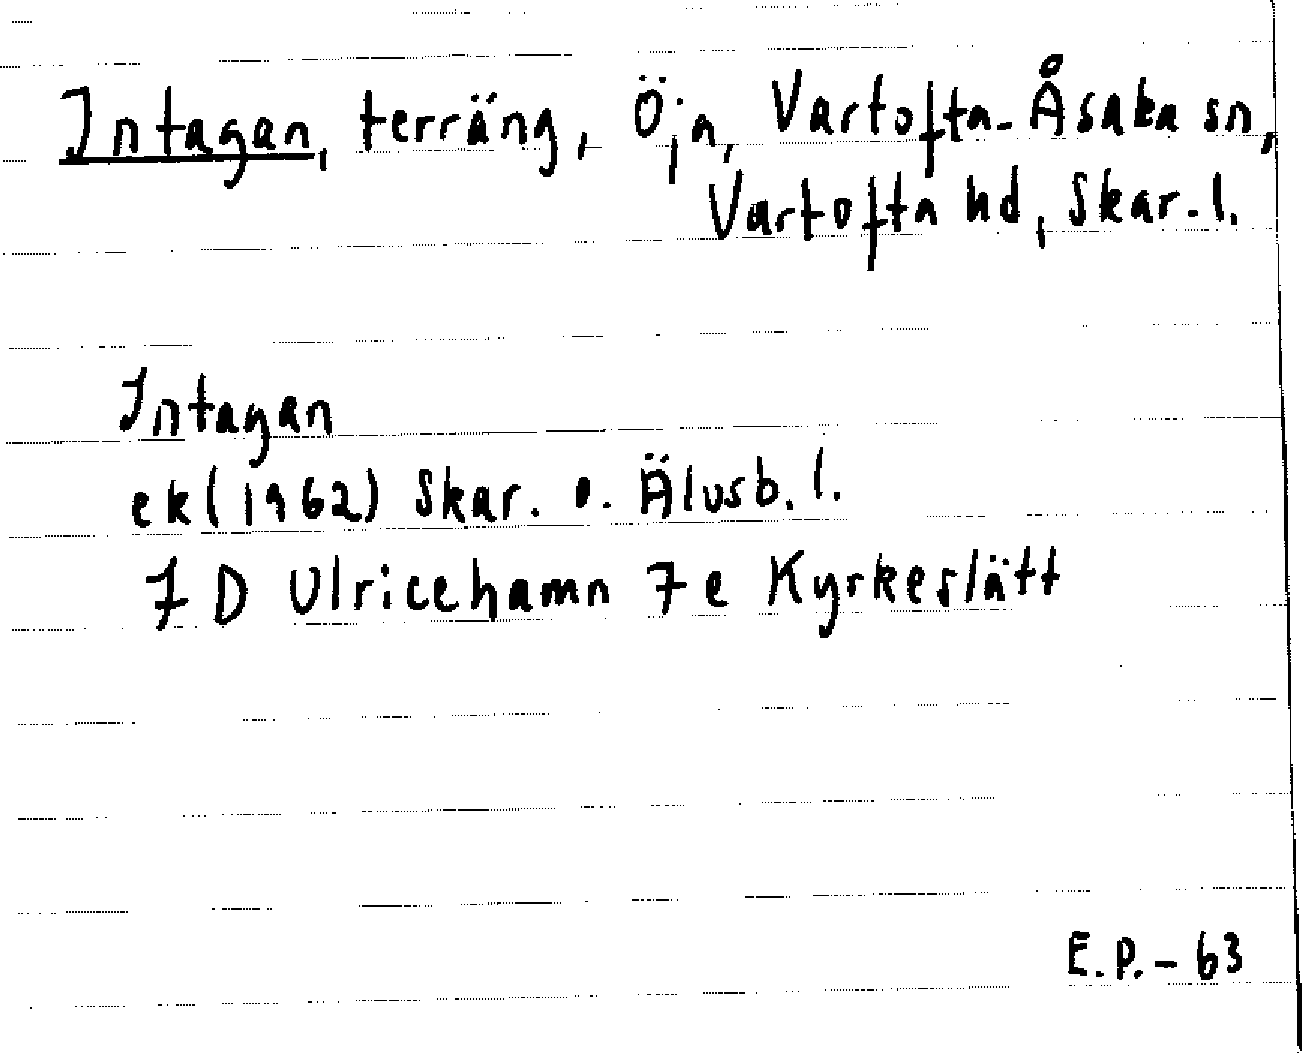 Intagan, terräng, Öja, Vartofta-Åsaka sn,
Vartofta hd, Skar. l.
Intagan
ek (1962) Skar. o. Älvsb. l.
7 D Ulricehamn 7 e Kyrkeslätt
E.P. - 63